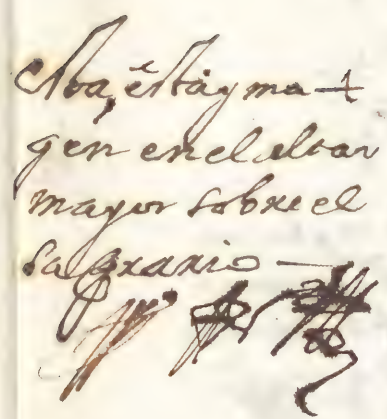 esta, esta yma +
gen en el altar
mayor sobre el
sagrario —